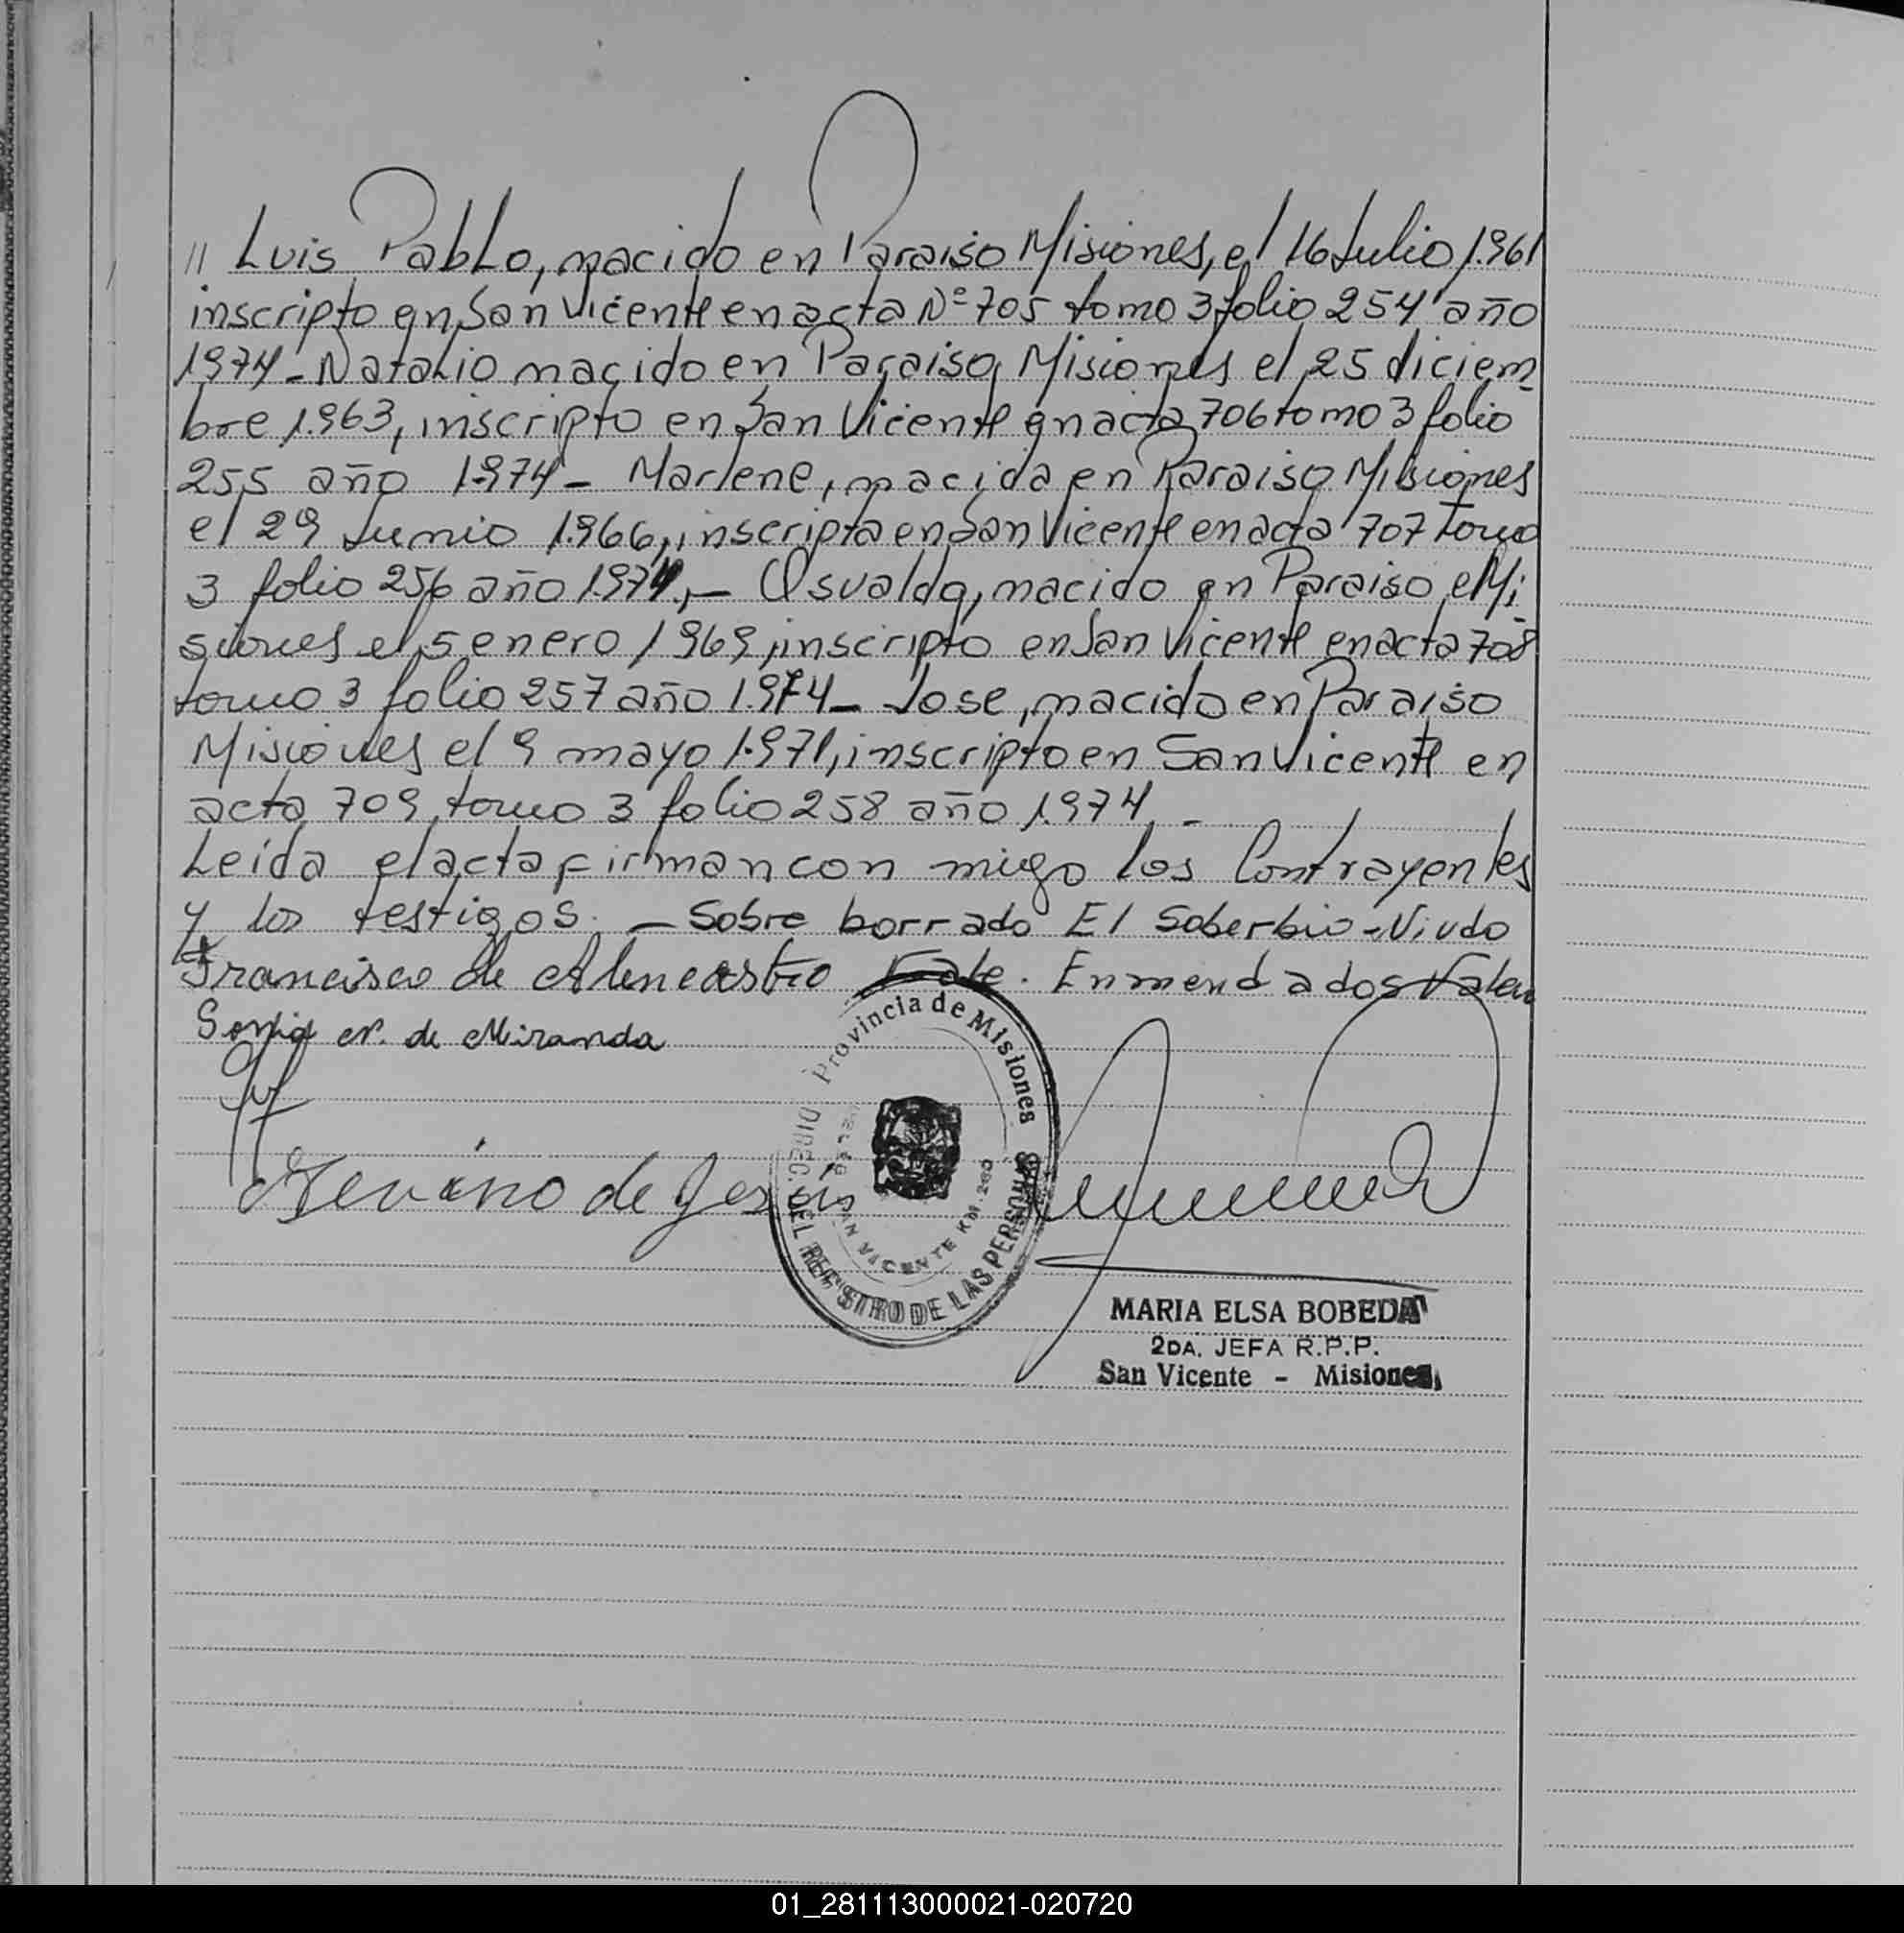 // Luis Pablo, nacido en Paraiso Misiones, el 16 Julio 1.961
inscripto en San Vicente en acta Nº 705 tomo 3 folio 254 año
1974 - Natalio nacido en Paraiso, Misiones el 25 diciem-
bre 1.963, inscripto en San Vicente en acta 706 tomo 3 folio
255 año 1.974 - Marlene, nacida en Paraiso Misiones
el 29 Junio 1.966, inscripta en San Vicente en acta 707 tomo
3 folio 256 año 1.974, - Osvaldo, nacido en Paraiso, Mi-
siones el 5 enero 1969, inscripto en San Vicente en acta 708
tomo 3 folio 257 año 1.974 - Jose, nacido en Paraiso
Misiones el 9 mayo 1.971, inscripto en San Vicente en
acta 709, tomo 3 folio 258 año 1.974. -
Leída el acta firman con migo los Contrayentes
y los testigos. - Sobre borrado El Soberbio - Viudo
Francisco de Alencastro Vale. Enmendados Valen
Sonia N. de Miranda
Genuino de Jesus
Provincia de Misiones
DIREC. DEL REGISTRO DE LAS PERSONAS
SAN VICENTE KM. 260
MARIA ELSA BOBEDA
2DA. JEFA R.P.P.
San Vicente - Misiones
01_281113000021-020720